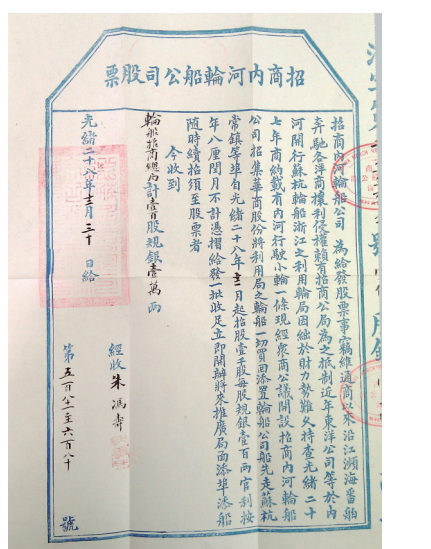 招商內河輪船公司股票
招商內河輪船公司 為給發股票事竊維通商以來沿江瀕海番舶
奔馳各洋商攘利侵權賴有招商公局為之抵制近年東洋公司等於內
河開行蘇杭輪船浙江之利用輪局因絀於財力勢難久持查光緒二十
七年商約載有內河行駛小輪一條現經衆商公議開設招商內河輪船
公司招集華商股份將利用局之輪船一切買回添置輪船公司船先走蘇杭
常鎮等埠自光緒二十八年十二月起招股壹千股每股規銀壹百兩官利按
年八厘閏月不計憑摺給發一批收足立即開辦將來推廣局面添埠添船
隨時續招須至股票者
今收到
輪船招商總局計壹百股規銀壹萬兩
光緒二十八年十二月三十日給
經收朱馮壽
第五百八十一至六百八十號